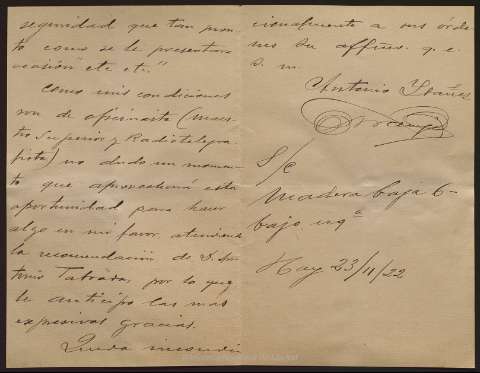 seguridad que tan pron-
to como se le presentara
ocasión" etc etc."
Como mis condiciones
son de oficinista (maes-
tro Superior y Radiotelegra-
fista) no dudo un momen-
to que aprovechará esta
oportunidad para hacer
algo en mi favor atendiendo
la recomendación de D. An-
tonio Taboada, por lo que
le anticipo las mas
expresivas gracias.
Queda incondi-
cionalmente a sus órde-
nes su affmo. q. e.
s. m.
Antonio Ybañez
S/c
Madera baja 6-
bajo izqª
Hoy 23/11/22